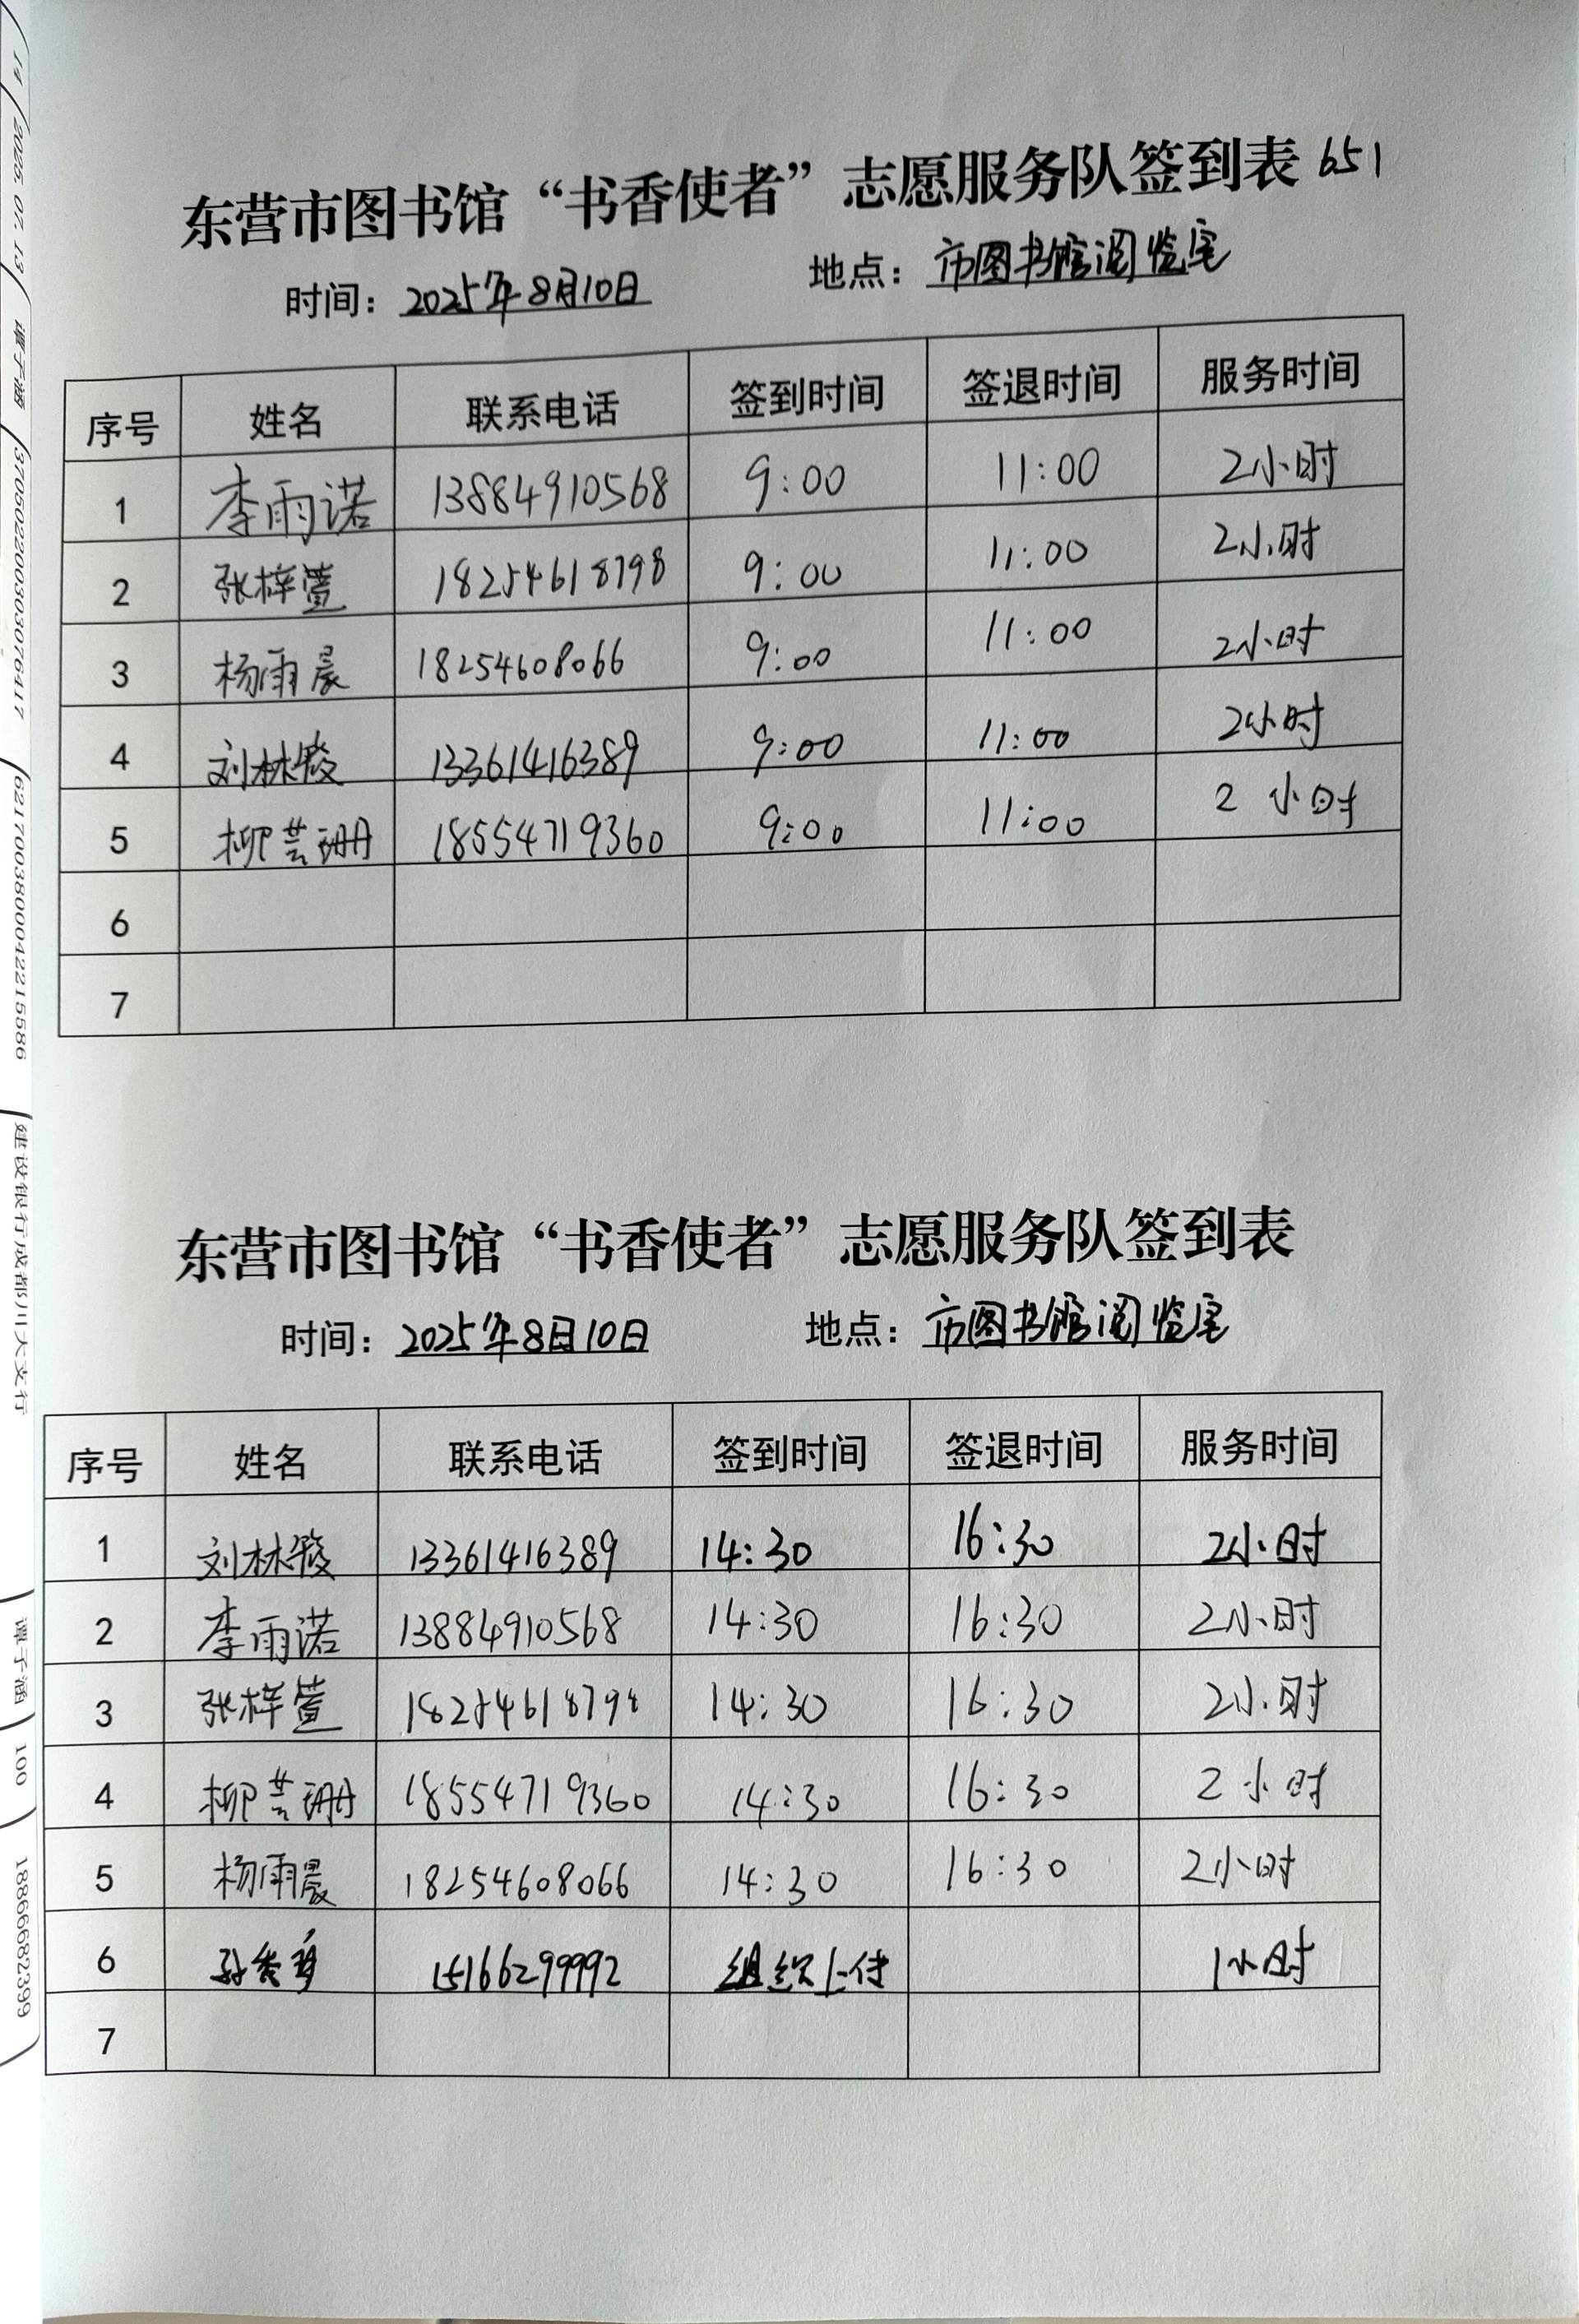 东营市图书馆“书香使者”志愿服务队签到表 651
时间：2025年8月10日 地点：市图书馆阅览室
序号 姓名 联系电话 签到时间 签退时间 服务时间
1 李雨诺 13884910568 9:00 11:00 2小时
2 张梓萱 18254618798 9:00 11:00 2小时
3 杨雨晨 18254608066 9:00 11:00 2小时
4 刘林 13361416389 9:00 11:00 2小时
5 柳芸珊 18554719360 9:00 11:00 2小时
6
7
东营市图书馆“书香使者”志愿服务队签到表
时间：2025年8月10日 地点：市图书馆阅览室
序号 姓名 联系电话 签到时间 签退时间 服务时间
1 刘林 13361416389 14:30 16:30 2小时
2 李雨诺 13884910568 14:30 16:30 2小时
3 张梓萱 18254618798 14:30 16:30 2小时
4 柳芸珊 18554719360 14:30 16:30 2小时
5 杨雨晨 18254608066 14:30 16:30 2小时
6 孙 15166299992 组织上传 1小时
7
14 2025. 07. 13 谭子涵 370502200303076417 6217003800042215586 建设银行成都川大支行 谭子涵 100 18866682399